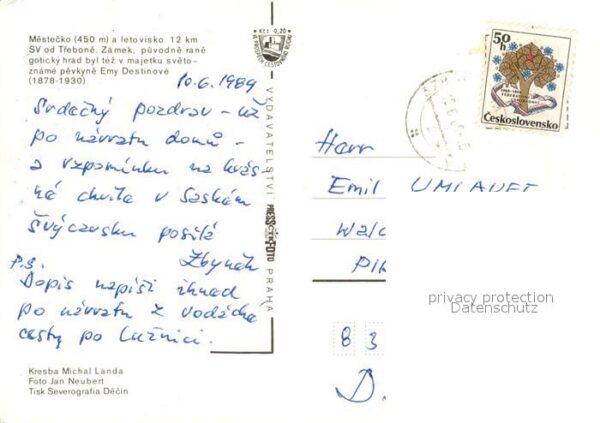 Městečko (450 m) a letovisko 12 km
SV od Třeboně. Zámek, původně raně
gotický hrad byl též v majetku světo-
známé pěvkyně Emy Destinové
(1878-1930)
Kčs 0,20
10.6.1989
Srdečný pozdrav - už
po návratu domů -
a vzpomínku na krás-
né chvíle v Saském
Švýcarsku posílá
Zbyněk
P.S.
Dopis napíši ihned
po návratu z vodácké
cesty po Lužnici.
Kresba Michal Landa
Foto Jan Neubert
Tisk Severografia Děčín
VYDAVATELSTVÍ PRESSFOTO PRAHA
50h
Československo
Herr
Emil UMLAUFT
privacy protection
Datenschutz
8 3
D.